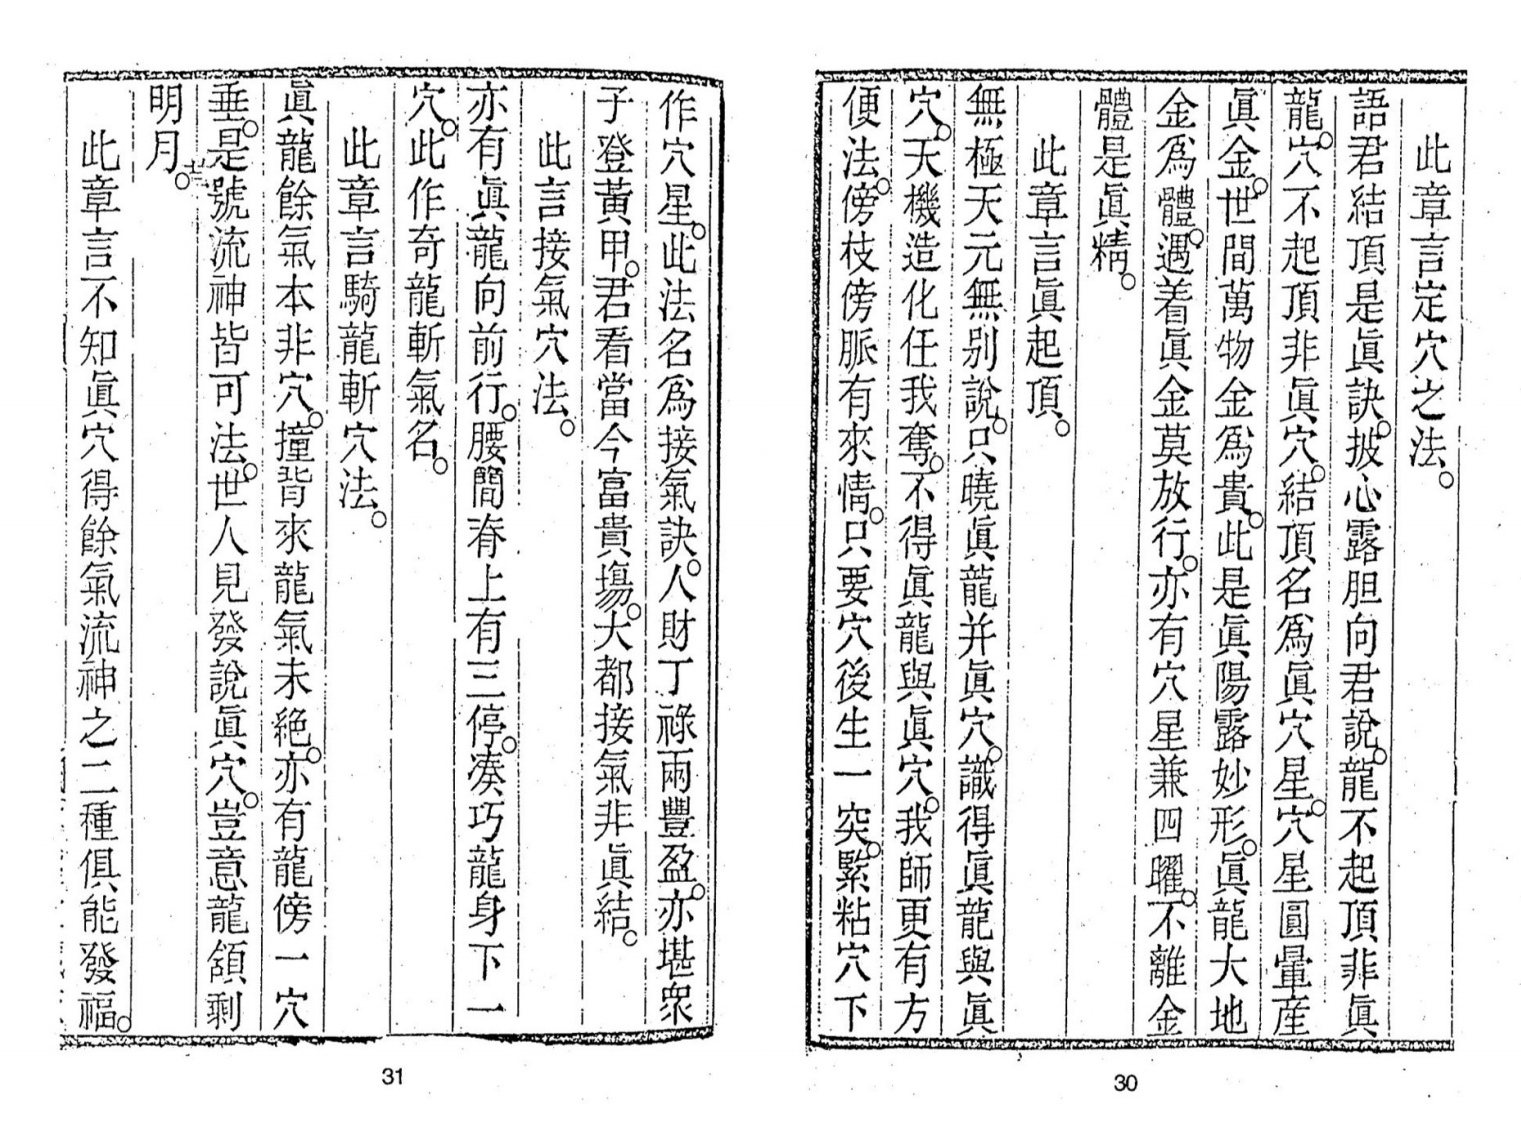 此章言定穴之法。
語君結頂是眞訣。披心露胆向君說。龍不起頂非眞
龍。穴不起頂非眞穴。結頂名爲眞穴星。穴星圓暈産
眞金。世間萬物金爲貴。此是眞陽露妙形。眞龍大地
金爲體。遇着眞金莫放行。亦有穴星兼四曜。不離金
體是眞精。
此章言眞起頂。
無極天元無別說。只曉眞龍并眞穴。識得眞龍與眞
穴。天機造化任我奪。不得眞龍與眞穴。我師更有方
便法。傍枝傍脈有來情。只要穴後生一突。緊粘穴下
30
作穴星。此法名爲接氣訣。人財丁祿兩豐盈。亦堪衆
子登黃甲。君看當今富貴塲。大都接氣非眞結。
此言接氣穴法。
亦有眞龍向前行。腰間脊上有三停。湊巧龍身下一
穴。此作奇龍斬氣名。
此章言騎龍斬穴法。
眞龍餘氣本非穴。撞背來龍氣未絕。亦有龍傍一穴
垂。是號流神皆可法。世人見發說眞穴。豈意龍頷剩
明月。
此章言不知眞穴得餘氣流神之二種俱能發福。
31